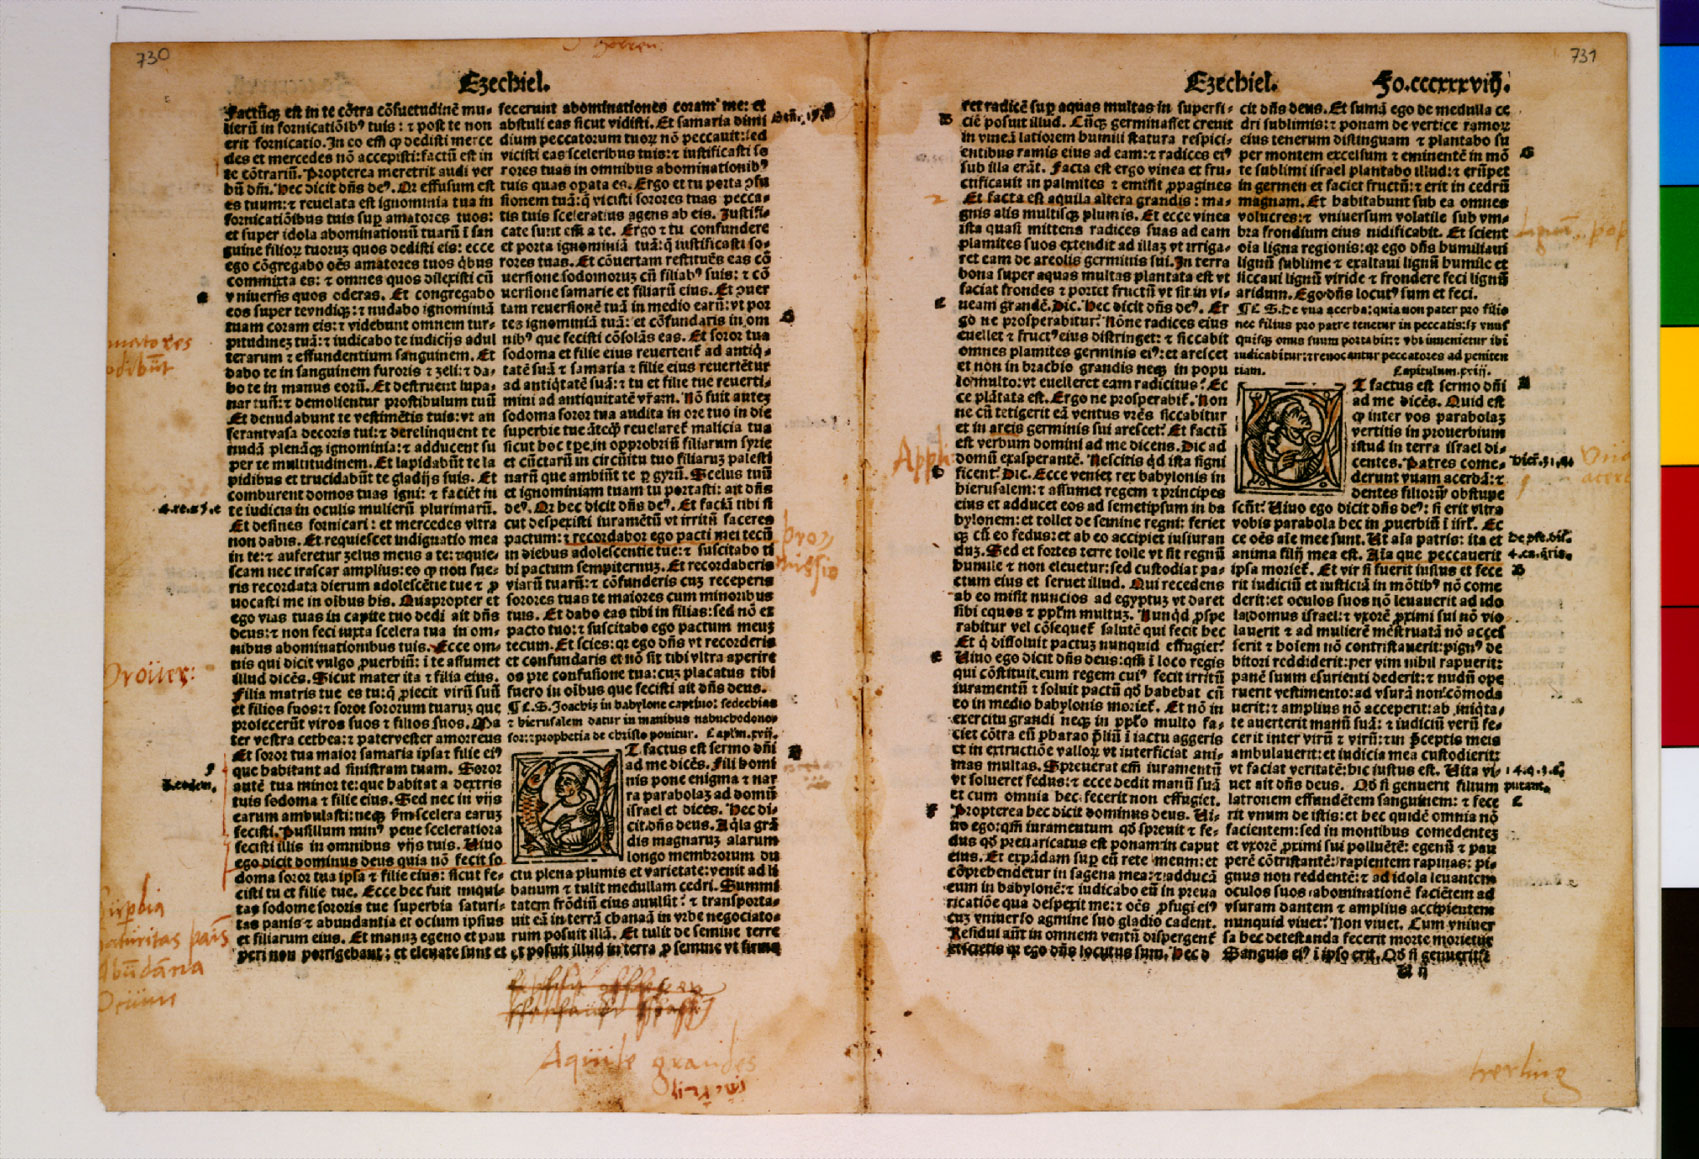 730
Ezechiel.
Factũqȝ est in te cõtra cõsuetudinẽ mu-
lierũ in fornicatiõibꝰ tuis : ⁊ post te non
erit fornicatio. In eo em̃ ꝙ dedisti merce
des et mercedes nõ accepisti: factũ est in
te cõtrariũ. Propterea meretrix audi ver
bũ dñi. Hec dicit dñs deꝰ. Qr effusum est
es tuum: ⁊ reuelata est ignominia tua in
fornicatiõibus tuis sup amatores tuos:
et super idola abominationũ tuarũ i san
guine filioꝝ tuoruȝ quos dedisti eis: ecce
ego cõgregabo oẽs amatores tuos q̇bus
commixta es: ⁊ omnes quos dilexisti cũ
vniuersis quos oderas. Et congregabo
eos super te vndiqȝ: ⁊ nudabo ignominiã
tuam coram eis: ⁊ videbunt omnem tur-
pitudineȝ tuã: ⁊ iudicabo te iudicijs adul
terarum ⁊ effundentium sanguinem. Et
dabo te in sanguinem furoris ⁊ zeli: ⁊ da-
bo te in manus eorũ. Et destruent lupa-
nar tuũ: ⁊ demolientur prostibulum tuũ
Et denudabunt te vestimẽtis tuis: vt au
ferant vasa decoris tui: ⁊ derelinquent te
nudã plenãqȝ ignominia: ⁊ adducent su
per te multitudinem. Et lapidabũt te la
pidibus et trucidabũt te gladijs suis. Et
comburent domos tuas igni: ⁊ faciẽt in
te iudicia in oculis mulierũ plurimarũ.
Et desines fornicari: et mercedes vltra
non dabis. Et requiescet indignatio mea
in te: ⁊ auferetur zelus meus a te: ⁊ quie-
scam nec irascar amplius: eo ꝙ non fue-
ris recordata dierum adolescẽtie tue ⁊ ꝓ
uocasti me in oĩbus his. Quapropter et
ego vias tuas in capite tuo dedi ait dñs
deus: ⁊ non feci iuxta scelera tua in om-
nibus abominationibus tuis. Ecce om-
nis qui dicit vulgo ꝓuerbiũ: i te assumet
illud dicẽs. Sicut mater ita ⁊ filia eius.
Filia matris tue es tu: q̃ ꝓiecit virũ suũ
et filios suos: ⁊ soror sororum tuaruȝ que
proiecerũt viros suos ⁊ filios suos. Ma
ter vestra cethea: ⁊ pater vester amorreus
Et soror tua maior samaria ipsa ⁊ filie eiꝰ
que habitant ad sinistram tuam. Soror
autẽ tua minor te: que habitat a dextris
tuis sodoma ⁊ filie eius. Sed nec in vijs
earum ambulasti: neqȝ fm̃ scelera earuȝ
fecisti. Pusillum minꝰ pene sceleratiora
fecisti illis in omnibus vijs tuis. Uiuo
ego dicit dominus deus quia nõ fecit so
doma soror tua ipsa ⁊ filie eius: sicut fe-
cisti tu et filie tue. Ecce hec fuit iniqui-
tas sodome sororis tue superbia saturi-
tas panis ⁊ abundantia et ocium ipsius
et filiarum eius. Et manuȝ egeno et pau
peri non porrigebant: et eleuate sunt et
fecerunt abominationes coram me: et
abstuli eas sicut vidisti. Et samaria dimi
dium peccatorum tuoꝝ nõ peccauit: sed
vicisti eas sceleribus tuis: ⁊ iustificasti so
rores tuas in omnibus abominationibꝰ
tuis quas oꝑata es. Ergo et tu porta ꝯfu
sionem tuã: q̃ vicisti sorores tuas pecca-
tis tuis sceleratius agens ab eis. Justifi-
cate sunt em̃ a te. Ergo ⁊ tu confundere
et porta ignominiã tuã: q̃ iustificasti so-
rores tuas. Et cõuertam restituẽs eas cõ
uersione sodomoruȝ cũ filiabꝰ suis: ⁊ cõ
uersione samarie et filiarũ eius. Et ꝯuer
tam reuersionẽ tuã in medio earũ: vt por
tes ignominiã tuã: et cõfundaris in om
nibꝰ que fecisti cõsolãs eas. Et soror tua
sodoma et filie eius reuertent̃ ad antiq̃-
tatẽ suã ⁊ samaria ⁊ filie eius reuertẽtur
ad antiq̃tatẽ suã: ⁊ tu et filie tue reuerti-
mini ad antiquitatẽ vr̃am. Nõ fuit auteȝ
sodoma soror tua audita in ore tuo in die
superbie tue ãteqȝ reuelaret̃ malicia tua
sicut hoc tp̃e in opprobriũ filiarum syrie
et cũctarũ in circũitu tuo filiaruȝ palesti
narũ que ambiũt te ꝑ gyrũ. Scelus tuũ
et ignominiam tuam tu portasti: ait dñs
deꝰ. Qr hec dicit dñs deꝰ. Et faciã tibi si
cut despexisti iuramẽtũ vt irritũ faceres
pactum: ⁊ recordabor ego pacti mei tecũ
in diebus adolescentie tue: ⁊ suscitabo ti
bi pactum sempiternuȝ. Et recordaberis
viarũ tuarũ: ⁊ cõfunderis cuȝ receperis
sorores tuas te maiores cum minoribus
tuis. Et dabo eas tibi in filias: sed nõ ex
pacto tuo: ⁊ suscitabo ego pactum meuȝ
tecum. Et scies: qr ego dñs vt recorderis
et confundaris et nõ sit tibi vltra aperire
os pre confusione tua: cuȝ placatus tibi
fuero in oĩbus que fecisti ait dñs deus.
¶ C. S. Joachiȝ in babylone captiuo: sedechias
⁊ hierusalem datur in manibus nabuchodono-
sor: ⁊ prophetia de christo ponitur. Capl'm. xvij.
ET factus est sermo dñi
ad me dicẽs. Fili homi
nis pone enigma ⁊ nar
ra parabolaȝ ad domũ
israel et dices. Hec di-
cit dñs deus. Aq̃la grã
dis magnaruȝ alarum
longo membrorum du
ctu plena plumis et varietate: venit ad li
banum ⁊ tulit medullam cedri. Summi
tatem frõdiũ eius auulsit: ⁊ transporta-
uit eã in terrã chanaã in vrbe negociato-
rum posuit illã. Et tulit de semine terre
et posuit illud in terra ꝓ semine vt firma
amatores
odibũt
4.re.25.e
Prouer:
Suꝑbia
saturitas pais
Abũdãtia
Ocium
promissio
Aquile grandes
731
Ezechiel. Fo.cccxxxviij.
ret radicẽ sup aquas multas in superfi-
ciẽ posuit illud. Cũqȝ germinasset creuit
in vineã latiorem humili statura respici-
entibus ramis eius ad eam: ⁊ radices eiꝰ
sub illa erãt. Facta est ergo vinea et fru-
ctificauit in palmites ⁊ emisit ꝓpagines
Et facta est aquila altera grandis: ma-
gnis alis multisqȝ plumis. Et ecce vinea
ista quasi mittens radices suas ad eam
plamites suos extendit ad illaȝ vt irriga-
ret eam de areolis germinis sui. In terra
bona super aquas multas plantata est vt
faciat frondes ⁊ portet fructũ vt sit in vi-
neam grandẽ. Dic. Hec dicit dñs deꝰ. Er
go ne prosperabitur? Nõne radices eius
euellet ⁊ fructꝰ eius distringet: ⁊ siccabit
omnes plamites germinis eiꝰ: et arescet
et non in brachio grandis neqȝ in popu
lo multo: vt euelleret eam radicitus? Ec
ce plãtata est. Ergo ne prosperabit̃. Non
ne cũ tetigerit eã ventus vrẽs siccabitur
et in areis germinis sui arescet? Et factũ
est verbum domini ad me dicens. Dic ad
domũ exasperantẽ. Nescitis q̃d ista signi
ficent? Dic. Ecce venieȝ rex babylonis in
hierusalem: ⁊ assumet regem ⁊ principes
eius et adducet eos ad semetipsum in ba
bylonem: et tollet de semine regni: feriet
qȝ cũ eo fedus: et ab eo accipiet iusiuran
duȝ. Sed et fortes terre tollet vt sit regnũ
humile ⁊ non eleuetur: sed custodiat pa-
ctum eius et seruet illud. Qui recedens
ab eo misit nuncios ad egyptuȝ vt daret
sibi equos ⁊ pplm multuȝ. Nunq̃d ꝓspe
rabitur vel cõsequet̃ salutẽ qui fecit hec
Et q̇ dissoluit pactuȝ nunquid effugiet?
Uiuo ego dicit dñs deus: qm̃ i loco regis
qui cõstituit eum regem cuiꝰ fecit irritũ
iuramentũ ⁊ soluit pactũ qd̃ habebat cũ
eo in medio babylonis moriet̃. Et nõ in
exercitu grandi neqȝ in pplo multo fa-
ciet cõtra eũ pharao p̃liũ i iactu aggeris
et in extructiõe valloꝝ vt interficiat ani-
mas multas. Spreuerat em̃ iuramentũ
vt solueret fedus: et ecce dedit manũ suã
et cum omnia hec fecerit non effugiet.
Propterea hec dicit dominus deus. Ui-
uo ego: qm̃ iuramentum qd̃ spreuit ⁊ fe-
dus qd̃ preuaricatus est ponam in caput
eius. Et expãdam sup eũ rete meum: et
cõprehendetur in sagena mea: ⁊ adducã
eum in babylonẽ: ⁊ iudicabo eũ in preua
ricatiõe qua despexit me: ⁊ oẽs ꝓfugi eiꝰ
cuȝ vniuerso agmine suo gladio cadent.
Residui aũt in omnem ventũ dispergent̃
et scietis qr ego dñs locutus sum. Hec di
cit dñs deus. Et sumã ego de medulla ce
dri sublimis: ⁊ ponam de vertice ramoꝝ
eius tenerum ⁊ distinguam ⁊ plantabo su
per montem excelsum ⁊ eminentẽ in mõ
te sublimi israel plantabo illud: ⁊ erũpet
in germen et faciet fructũ: ⁊ erit in cedrũ
magnam. Et habitabunt sub ea omnes
volucres: ⁊ vniuersum volatile sub vm-
bra frondium eius nidificabit. Et scient
oĩa ligna regionis: qr ego dñs humiliaui
lignũ sublime ⁊ exaltaui lignũ humile et
siccaui lignũ viride ⁊ frondere feci lignũ
aridum. Ego dñs locutꝰ sum et feci.
¶ C. S. De vua acerba: quia non pater pro filio
nec filius pro patre tenetur in peccatis: sȝ vnus
quisqȝ onus suum portabit: ⁊ vbi inuenietur ibi
iudicabitur: ⁊ reuocantur peccatores ad peniten
tiam. Capitulum. xviij.
ET factus est sermo dñi
ad me dicẽs. Quid est
ꝙ inter vos parabolaȝ
vertitis in prouerbium
istud in terra israel di-
centes. Patres come-
derunt vuam acerbã: ⁊
dentes filiorũ obstupe
scũt? Uiuo ego dicit dñs deꝰ: si erit vltra
vobis parabola hec in ꝓuerbiũ i isrl'. Ec
ce oẽs aĩe mee sunt. Ut aĩa patris: ita et
anima filij mea est. Aĩa que peccauerit
ipsa moriet̃. Et vir si fuerit iustus et fece
rit iudiciũ et iusticiã in mõtibꝰ nõ come
derit: et oculos suos nõ leuauerit ad ido
la domus israel: ⁊ vxorẽ ꝓximi sui nõ vio
lauerit ⁊ ad mulierẽ mẽstruatã nõ acces
serit ⁊ hoĩem nõ contristauerit: pignꝰ de
bitori reddiderit: per vim nihil rapuerit:
panẽ suum esurienti dederit: ⁊ nudũ ope
ruerit vestimento: ad vsurã non cõmoda
uerit: ⁊ amplius nõ acceperit: ab iniq̃ta-
te auerterit manũ suã: ⁊ iudiciũ verũ fe-
cerit inter virũ ⁊ virũ: ⁊ in p̃ceptis meis
ambulauerit: et iudicia mea custodierit:
vt faciat veritatẽ: hic iustus est. Uita vi-
uet ait dñs deus. Qd̃ si genuerit filium
latronem effundẽtem sanguinem: ⁊ fece
rit vnum de istis: et hec quidẽ omnia nõ
facientem: sed in montibus comedenteȝ
et vxorẽ ꝓximi sui polluẽtẽ: egenũ ⁊ pau
perẽ cõtristantẽ: rapientem rapinas: pi-
gnus non reddentẽ: ⁊ ad idola leuantem
oculos suos: abominationẽ faciẽtem ad
vsuram dantem ⁊ amplius accipientem
nunquid viuet? Non viuet. Cum vniuer
sa hec detestanda fecerit morte morietur
Sanguis eiꝰ i ipso erit. Qd̃ si genuerit fi
U ij
B
C
D
E
F
G
A
B
C
Hier.31.